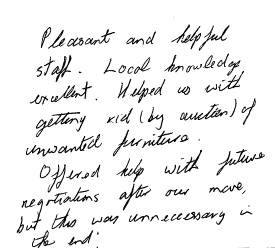 Pleasant and helpful
staff. Local knowledge
excellent. Helped us with
getting rid (by auction) of
unwanted furniture.
Offered help with future
negotiations after our move,
but this was unnecessary in
the end.